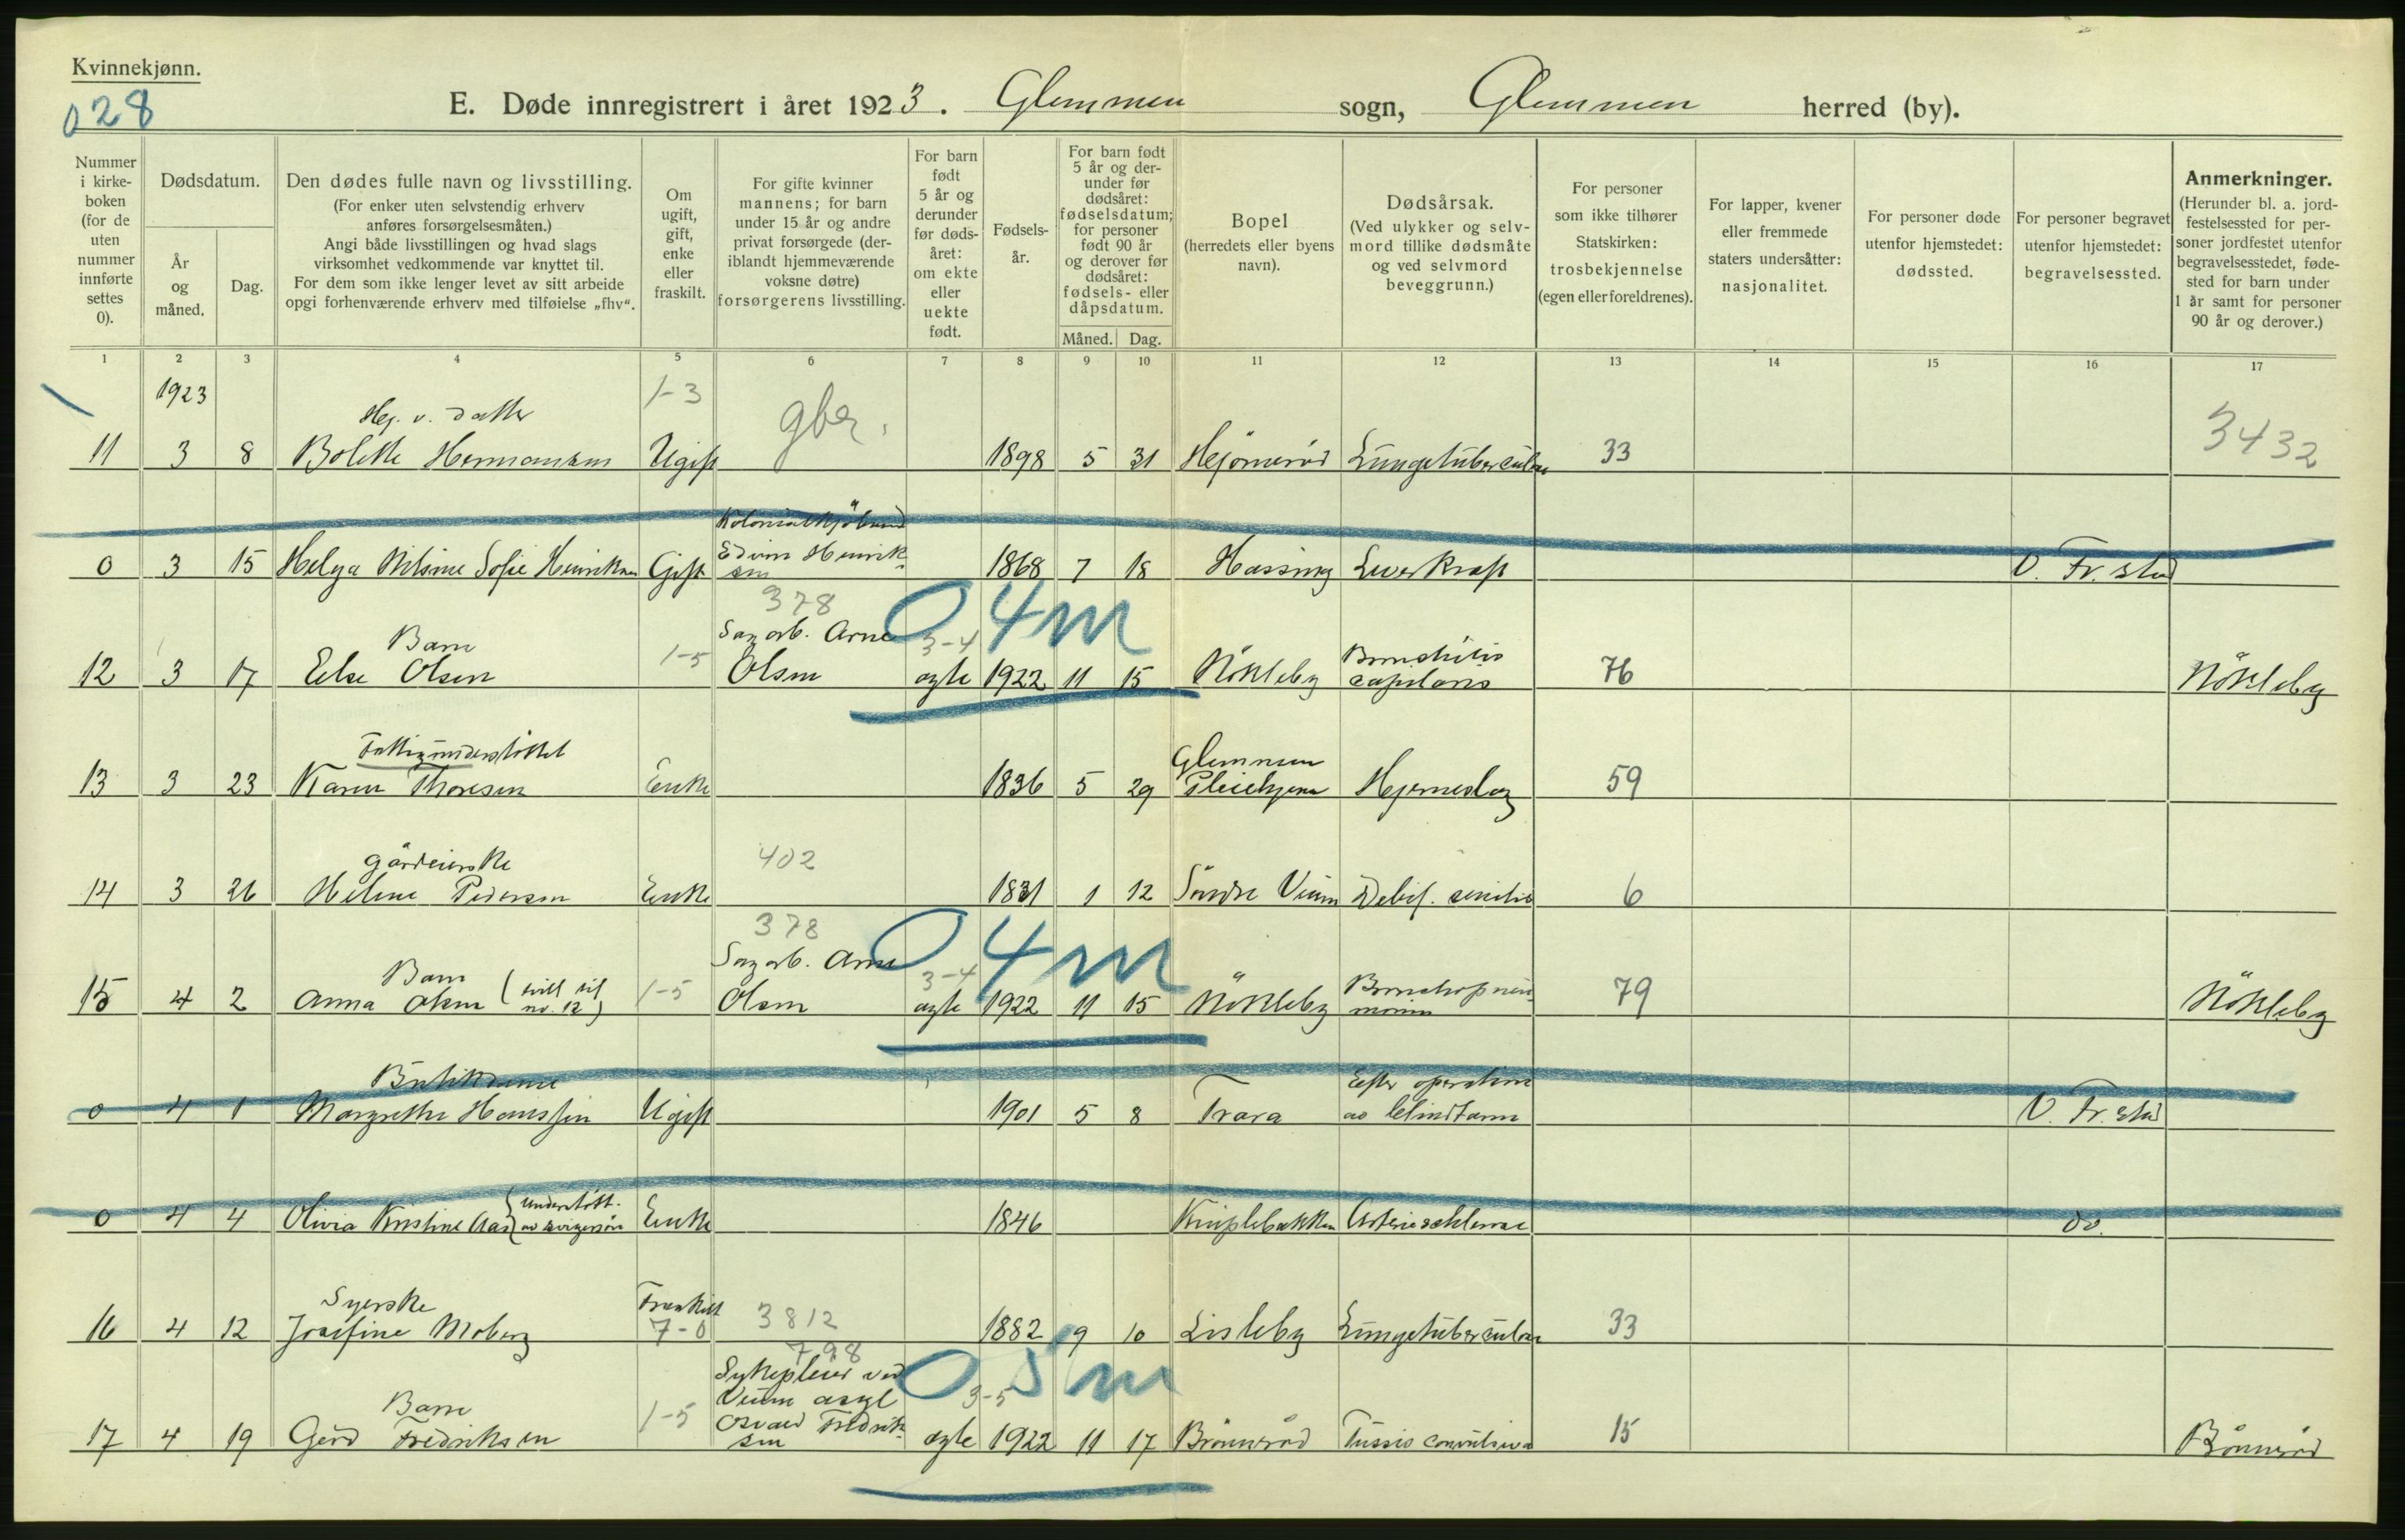 Kvinnekjønn.
028
E. Døde innregistrert i året 1923. Glemmen sogn, Glemmen herred (by).
Nummer i kirke-boken (for de uten nummer innførte settes 0).
Dødsdatum.
År og måned.
Dag.
Den dødes fulle navn og livsstilling.
(For enker uten selvstendig erhverv anføres forsørgelsesmåten.)
Angi både livsstillingen og hvad slags virksomhet vedkommende var knyttet til.
For dem som ikke lenger levet av sitt arbeide opgi forhenværende erhverv med tilføielse „fhv“.
Om ugift, gift, enke eller fraskilt.
For gifte kvinner mannens; for barn under 15 år og andre privat forsørgede (deriblandt hjemmeværende voksne døtre) forsørgerens livsstilling.
For barn født 5 år og derunder før dødsåret: om ekte eller uekte født.
Fødsels-år.
For barn født 5 år og derunder før dødsåret: fødselsdatum; for personer født 90 år og derover før dødsåret: fødsels- eller dåpsdatum.
Måned. Dag.
Bopel (herredets eller byens navn).
Dødsårsak.
(Ved ulykker og selvmord tillike dødsmåte og ved selvmord beveggrunn.)
For personer som ikke tilhører Statskirken: trosbekjennelse (egen eller foreldrenes).
For lapper, kvener eller fremmede staters undersåtter: nasjonalitet.
For personer døde utenfor hjemstedet: dødssted.
For personer begravet utenfor hjemstedet: begravelsessted.
Anmerkninger.
(Herunder bl. a. jordfestelsessted for personer jordfestet utenfor begravelsesstedet, fødested for barn under 1 år samt for personer 90 år og derover.)
1 2 3 4 5 6 7 8 9 10 11 12 13 14 15 16 17
1923 1-3
Hej. v. datter gbr. 3432
11 3 8 Bolette Hermansen Ugift 1898 5 31 Hejornerød Lungetuberculose 33
Kolonialkjøbmand
0 3 15 Helga Nilsine Sofie Henriksen Gift Edvin Henriksen 1868 7 18 Hassing Leverkræft V. Fr.stad
378 0 4 m
Barn Sagarb. Arne 3-4 Bronchitis
12 3 17 Else Olsen 1-5 Olsen egte 1922 11 15 Nökleby capilaris 76 Nökleby
Fattigunderstöttet Glemmen
13 3 23 Karen Thoresen Enke 1836 5 29 Pleiehjem Hjerneslag 59
Gårdeierske 402
14 3 26 Helene Pedersen Enke 1831 1 12 Söndre Veum Debil. senilis 6
378 0 4 m
Barn Sagarb. Arne 3-4 Bronchopneu-
15 4 2 Anna Olsen (tvill. til no. 12) 1-5 Olsen egte 1922 11 15 Nökleby monin 79 Nökleby
Butikdame Efter operation
0 4 1 Margrethe Hanssen Ugift 1901 5 8 Trara av blindtarm V. Fr.stad
0 4 4 Olivia Kristine Aas (understött. av svigersön Enke 1846 Kniplebakken Arteriosklerose do.
Syerske Fraskilt
16 4 12 Josefine Moberg 7-0 3812 1882 9 10 Lisleby Lungetuberculose 33
798
Sykepleier ved 0 5 m
Veum asyl 3-5
Barn 1-5 Osvald Fredrik-
17 4 19 Gerd Fredriksen sen egte 1922 11 17 Brönneröd Tussis convulsiva 15 Brönneröd